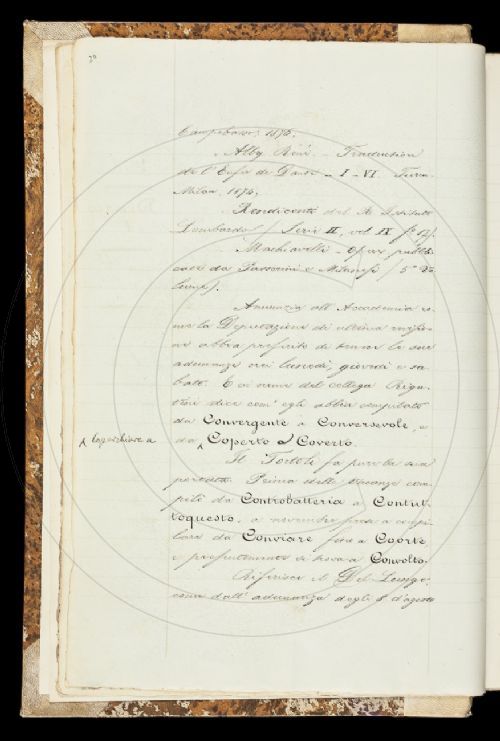 20
Campobasso, 1876.
Alby René - Traduction
de l'Enfer de Dante - I - VI. Turin
Milan, 1876.
Rendiconti del R. Istituto
Lombardo / Serie II, vol. IX
Machiavelli - Opere pubbli-
cate da Passerini e Milanesi / 5° Vo-
lume /.
Annunzia all'Accademia co-
me la Deputazione di ultima revisio-
ne abbia preferito di tenere le sue
adunanze nei lunedì, giovedì e sa-
bato. E a nome del collega Rigu-
tini dice com'egli abbia compilato
da Convergente a Conversevole, e
da Coperto a Coverto.
Coperchiare a
Il Tortoli fa pure la sua
. Prima delle vacanze com-
pilò da Controbatteria a Contut-
toquesto, a novembre prese a compi-
lare da Conviare fino a Coorte
e presentemente si trova a Convolto.
Riferisce il Del Lungo,
come dall'adunanza degli 8 d'agosto